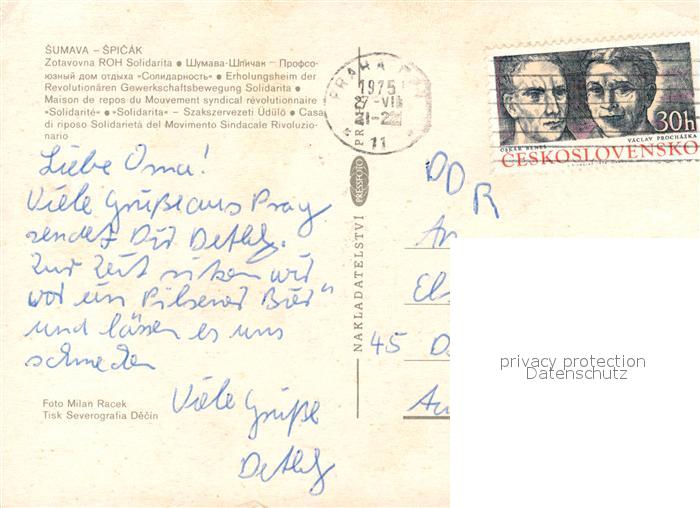 ŠUMAVA – ŠPIČÁK
Zotavovna ROH Solidarita ● Шумава-Шпичак – Профсо-
юзный дом отдыха «Солидарность» ● Erholungsheim der
Revolutionären Gewerkschaftsbewegung Solidarita ●
Maison de repos du Mouvement syndical révolutionnaire
«Solidarité» ● «Solidarita» – Szakszervezeti Üdülő ● Casa
di riposo Solidarietà del Movimento Sindacale Rivoluzio-
nario
Liebe Oma!
Viele Grüße aus Prag
sendet Dir Detlef.
Zur Zeit sitzen wir
vor ein Pilsener Bier"
und lassen es uns
schmecken
Viele Grüße
Detlef
Foto Milan Racek
Tisk Severografia Děčín
NAKLADATELSTVÍ
PRESSFOTO
PRAHA
1975
27-VII
1-2
11
OSKAR BENEŠ
VÁCLAV PROCHÁZKA
30h
ČESKOSLOVENSKO
DDR
An
45 D
privacy protection
Datenschutz